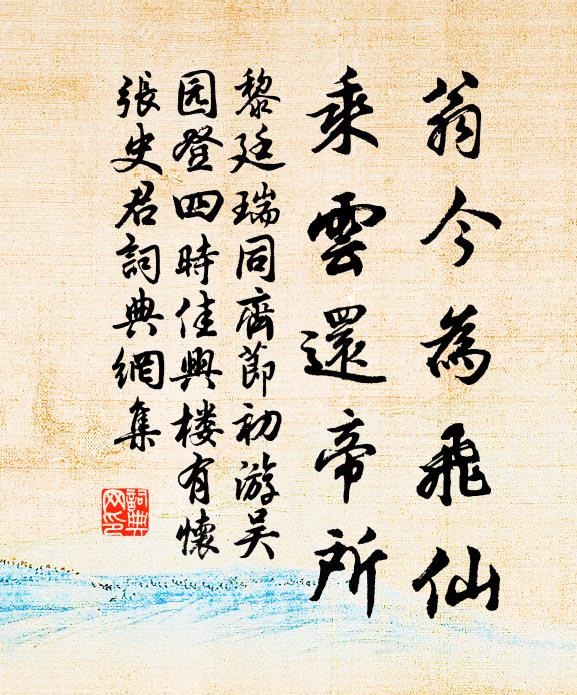 翁今為飛仙
乘雲還帝所
黎廷瑞同齊節初游吴
园登四時佳興楼有懷
張史君詞典網集
詞典
网印